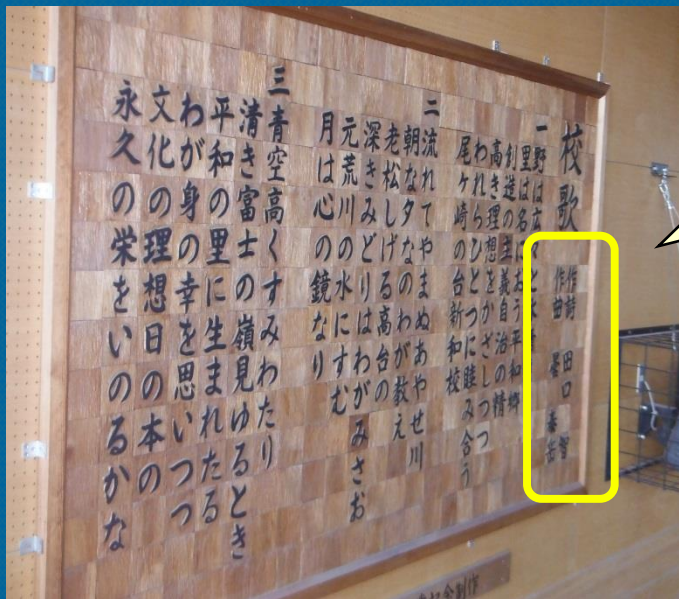 校歌
作詩 田口
作曲 星
一 野は広々と水
里は名におう平和郷
創造の主義自治の精
高き理想をかざしつつ
われらひとつに睦み合う
尾ヶ崎の台新和校
二 流れてやまぬあやせ川
朝な夕なのわが教え
老松しげる高台の
深きみどりはわがみさお
元荒川の水にすむ
月は心の鏡なり
三 青空高くすみわたり
清き富士の嶺見ゆるとき
平和の里に生まれたる
わが身の幸を思いつつ
文化の理想日の本の
永久の栄をいのるかな
制作